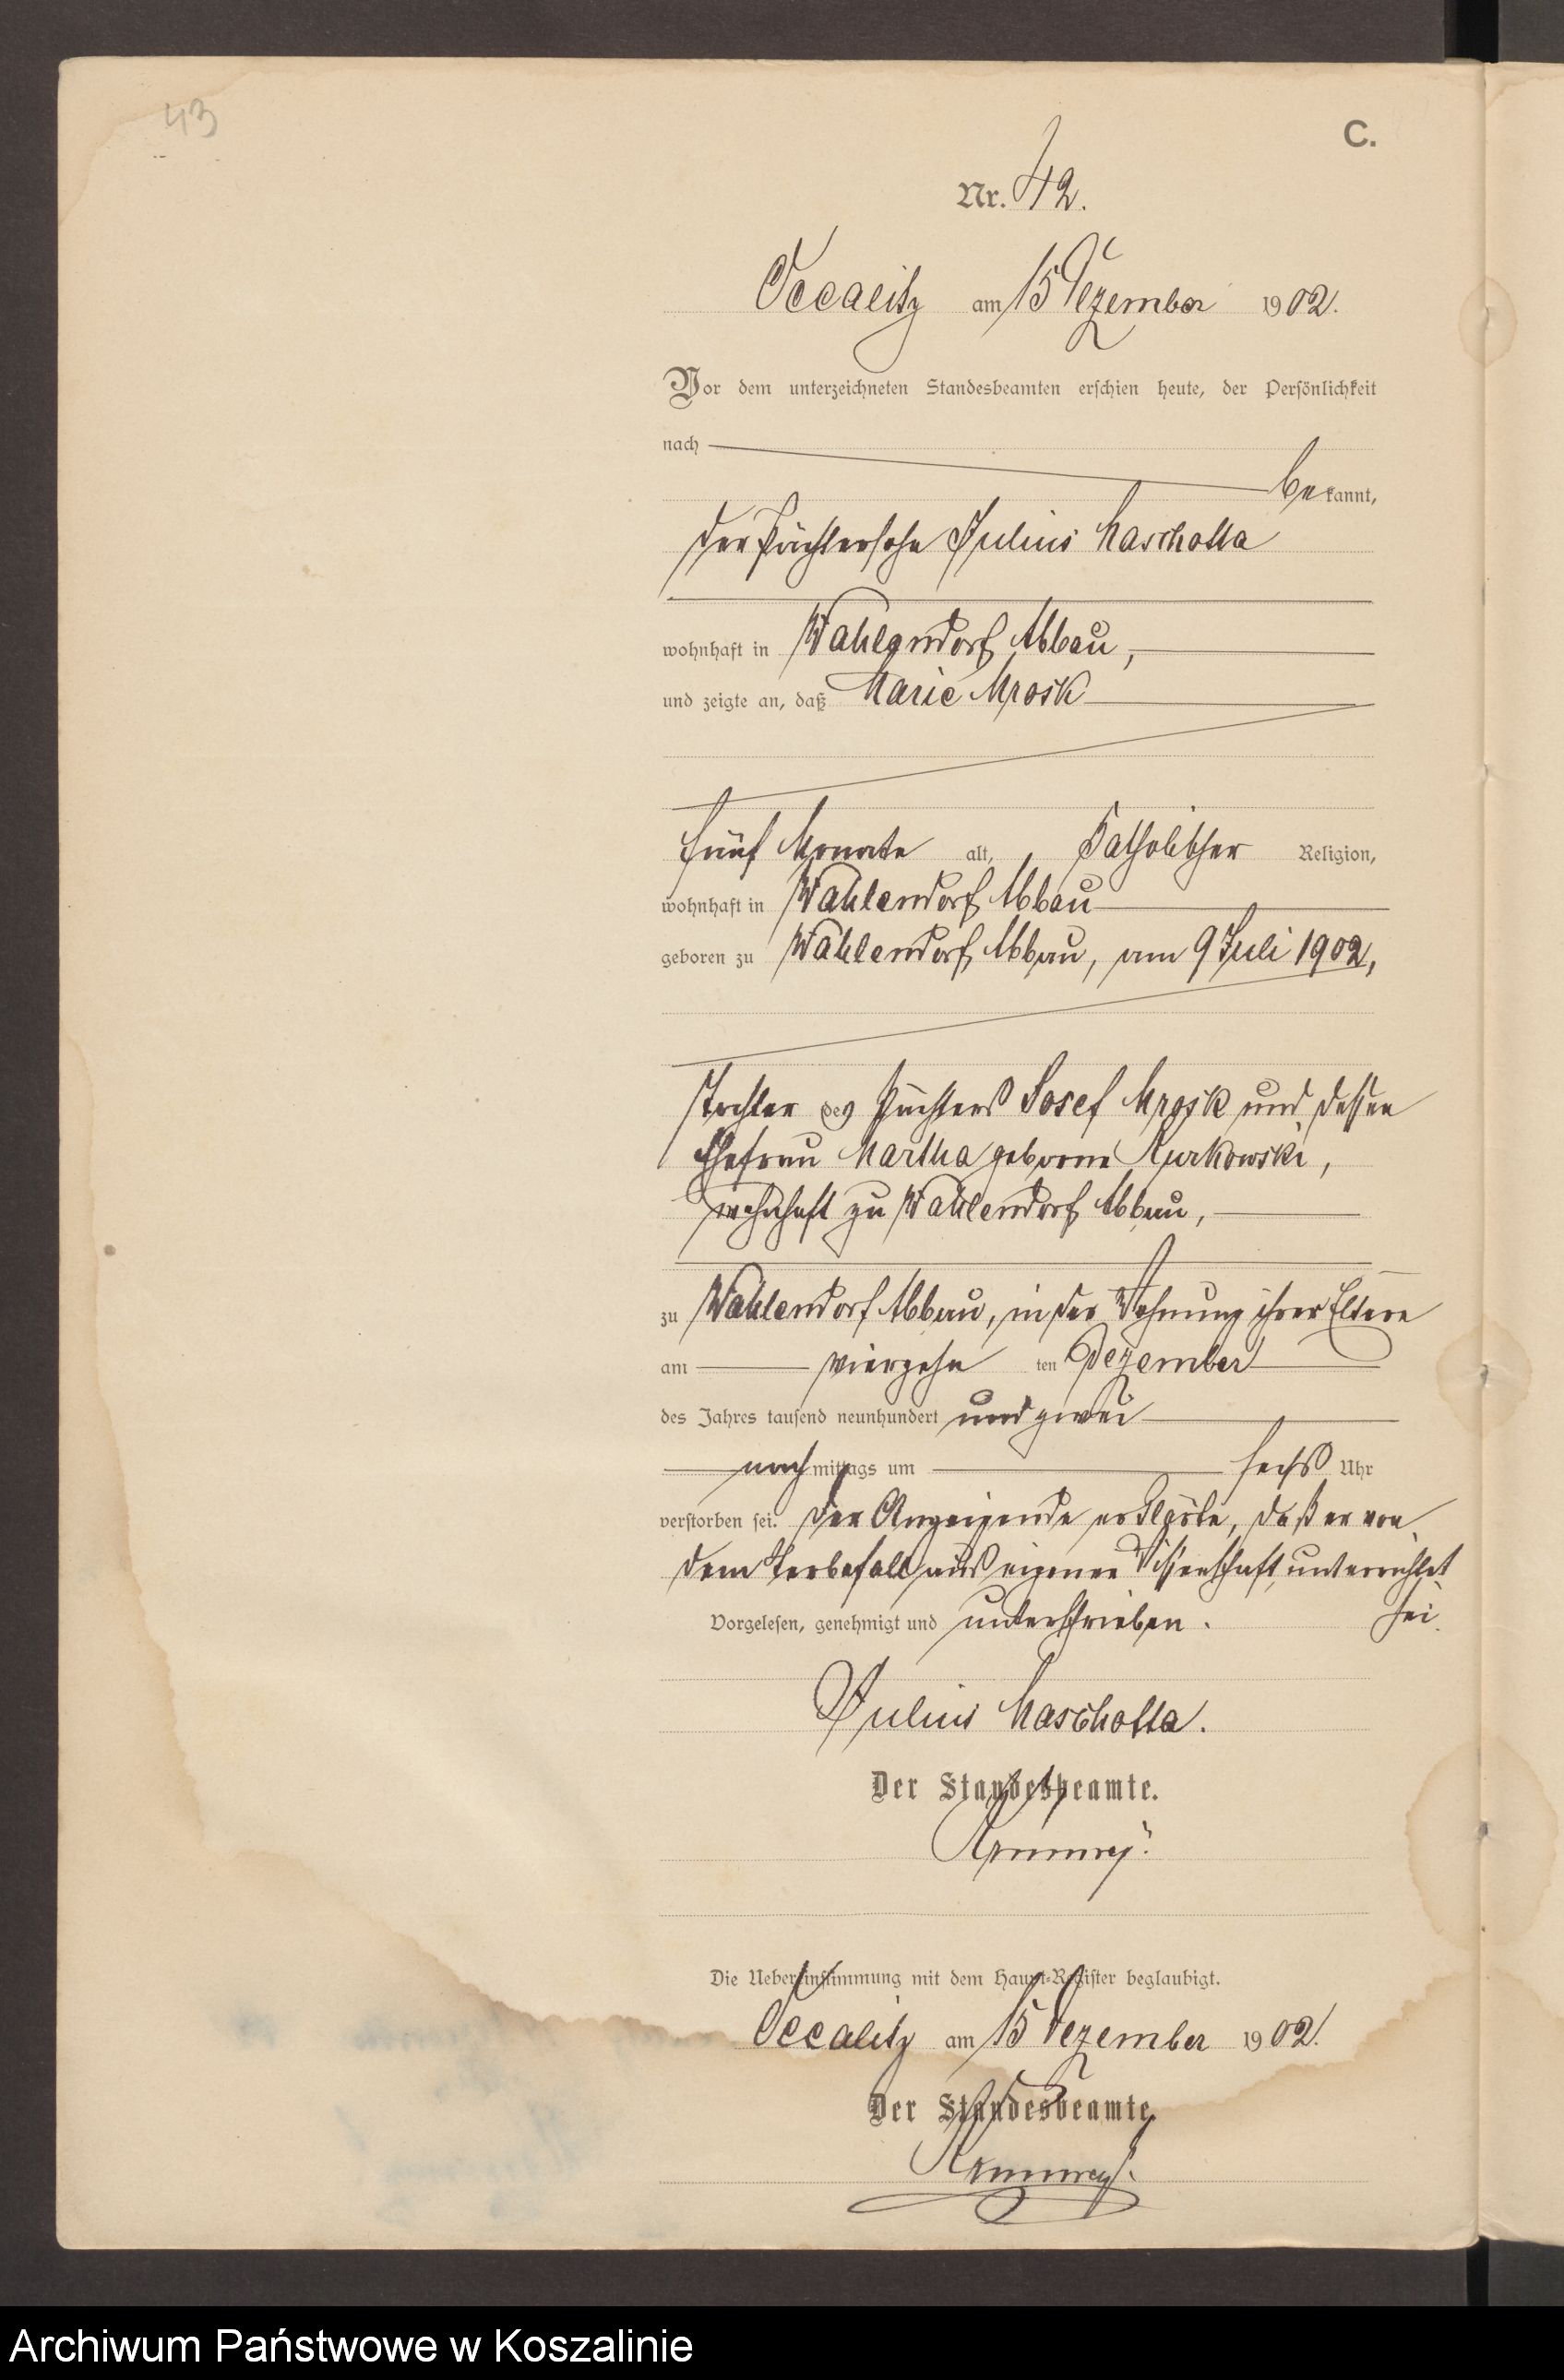 43
C.
Nr. 42.
Occalitz am 15 Dezember 1902.
Vor dem unterzeichneten Standesbeamten erschien heute, der Persönlichkeit
nach
bekannt,
der Pächtersohn Julius Maschotta
wohnhaft in Wahlendorf Abbau,
und zeigte an, daß Marie Mrosk
fünf Monate alt, Katholischer Religion,
wohnhaft in Wahlendorf Abbau
geboren zu Wahlendorf Abbau, am 9 Juli 1902,
Tochter des Pächters Josef Mrosk und dessen
Ehefrau Martha geborene Kurkowski,
wohnhaft zu Wahlendorf Abbau,
zu Wahlendorf Abbau, in der Wohnung ihrer Eltern
am vierzehn ten Dezember
des Jahres tausend neunhundert und zwei
nachmittags um sechs Uhr
verstorben sei. Der Anzeigende erklärte, daß er von
dem Sterbefall aus eigener Wissenschaft unterrichtet
sei.
Vorgelesen, genehmigt und unterschrieben.
Julius Maschotta.
Der Standesbeamte.
Die Uebereinstimmung mit dem Haupt-Register beglaubigt.
Occalitz am 15 Dezember 1902.
Der Standesbeamte
Archiwum Państwowe w Koszalinie